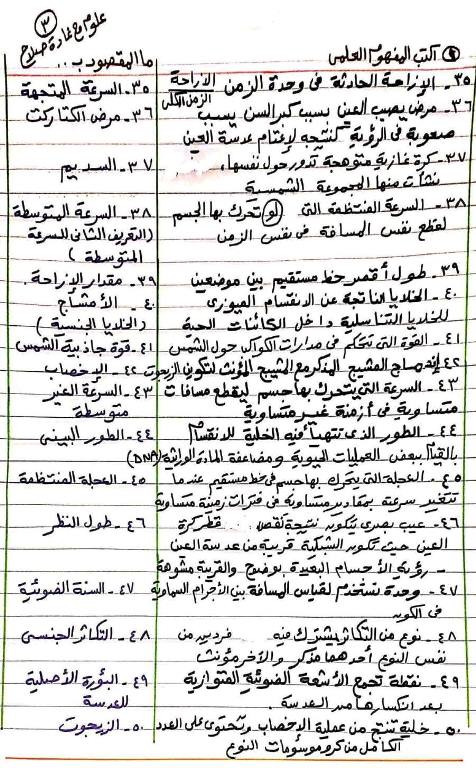 علوم مع غادة صلاح
٣
اكتب المفهوم العلمى
ما المقصود بـ..
٣٥- الإزاحة الحادثة فى وحدة الزمن الإزاحة / الزمن الكلى
٣٥- السرعة المتجهة
٣٦- مرض يصيب العين بسبب كبر السن يسبب
٣٦- مرض الكتاركت
صعوبة فى الرؤية كنتيجه لإعتام عدسة العين
٣٧- كرة غازية متوهجة تدور حول نفسها،
٣٧- السديم
نشأت منها المجموعة الشمسية
٣٨- السرعة المنتظمة التى لو تحرك بها الجسم
٣٨- السرعة المتوسطة
لقطع نفس المسافة فى نفس الزمن
(التعريف الثانى للسرعة
المتوسطة)
٣٩- طول أقصر خط مستقيم بين موضعين
٣٩- مقدار الإزاحة.
٤٠- الخلايا الناتجة عن الانقسام الميوزى
٤٠- الأمشاج
للخلايا التناسلية داخل الكائنات الحية
(الخلايا الجنسية)
٤١- القوة التى تتحكم فى مدارات الكواكب حول الشمس
٤١- قوة جاذبية الشمس
٤٢- إندماج المشيج المذكر مع المشيج المؤنث لتكوين الزيجوت
٤٢- الإخصاب
٤٣- السرعة التى يتحرك بها جسم ليقطع مسافات
٤٣- السرعة الغير
متساوية فى أزمنة غير متساوية
متوسطة
٤٤- الطور الذى تتهيأ فيه الخلية للانقسام
٤٤- الطور البينى
بالقيام ببعض العمليات الحيوية ومضاعفة المادة الوراثية (DNA)
٤٥- العجلة التى يتحرك بها جسم فى خط مستقيم عندما
٤٥- العجلة المنتظمة
تتغير سرعته بمقادير متساوية فى فترات زمنية متساوية
٤٦- عيب بصرى يتكون نتيجة نقص قطر كرة
٤٦- طول النظر
العين حيث تكون الشبكية قريبة من عدسة العين
- رؤية الأجسام البعيدة بوضوح والقريبة مشوهة
٤٧- وحدة تستخدم لقياس المسافة بين الأجرام السماوية
٤٧- السنة الضوئية
فى الكون
٤٨- نوع من التكاثر يشترك فيه فردين من
٤٨- التكاثر الجنسى
نفس النوع أحدهما مذكر والآخر مؤنث
٤٩- نقطة تجمع الأشعة الضوئية المتوازية
٤٩- البؤرة الأصلية
بعد انكسارها من العدسة.
للعدسة
٥٠- خلية تنتج من عملية الإخصاب وتحتوى على العدد
٥٠- الزيجوت
الكامل من كروموسومات النوع